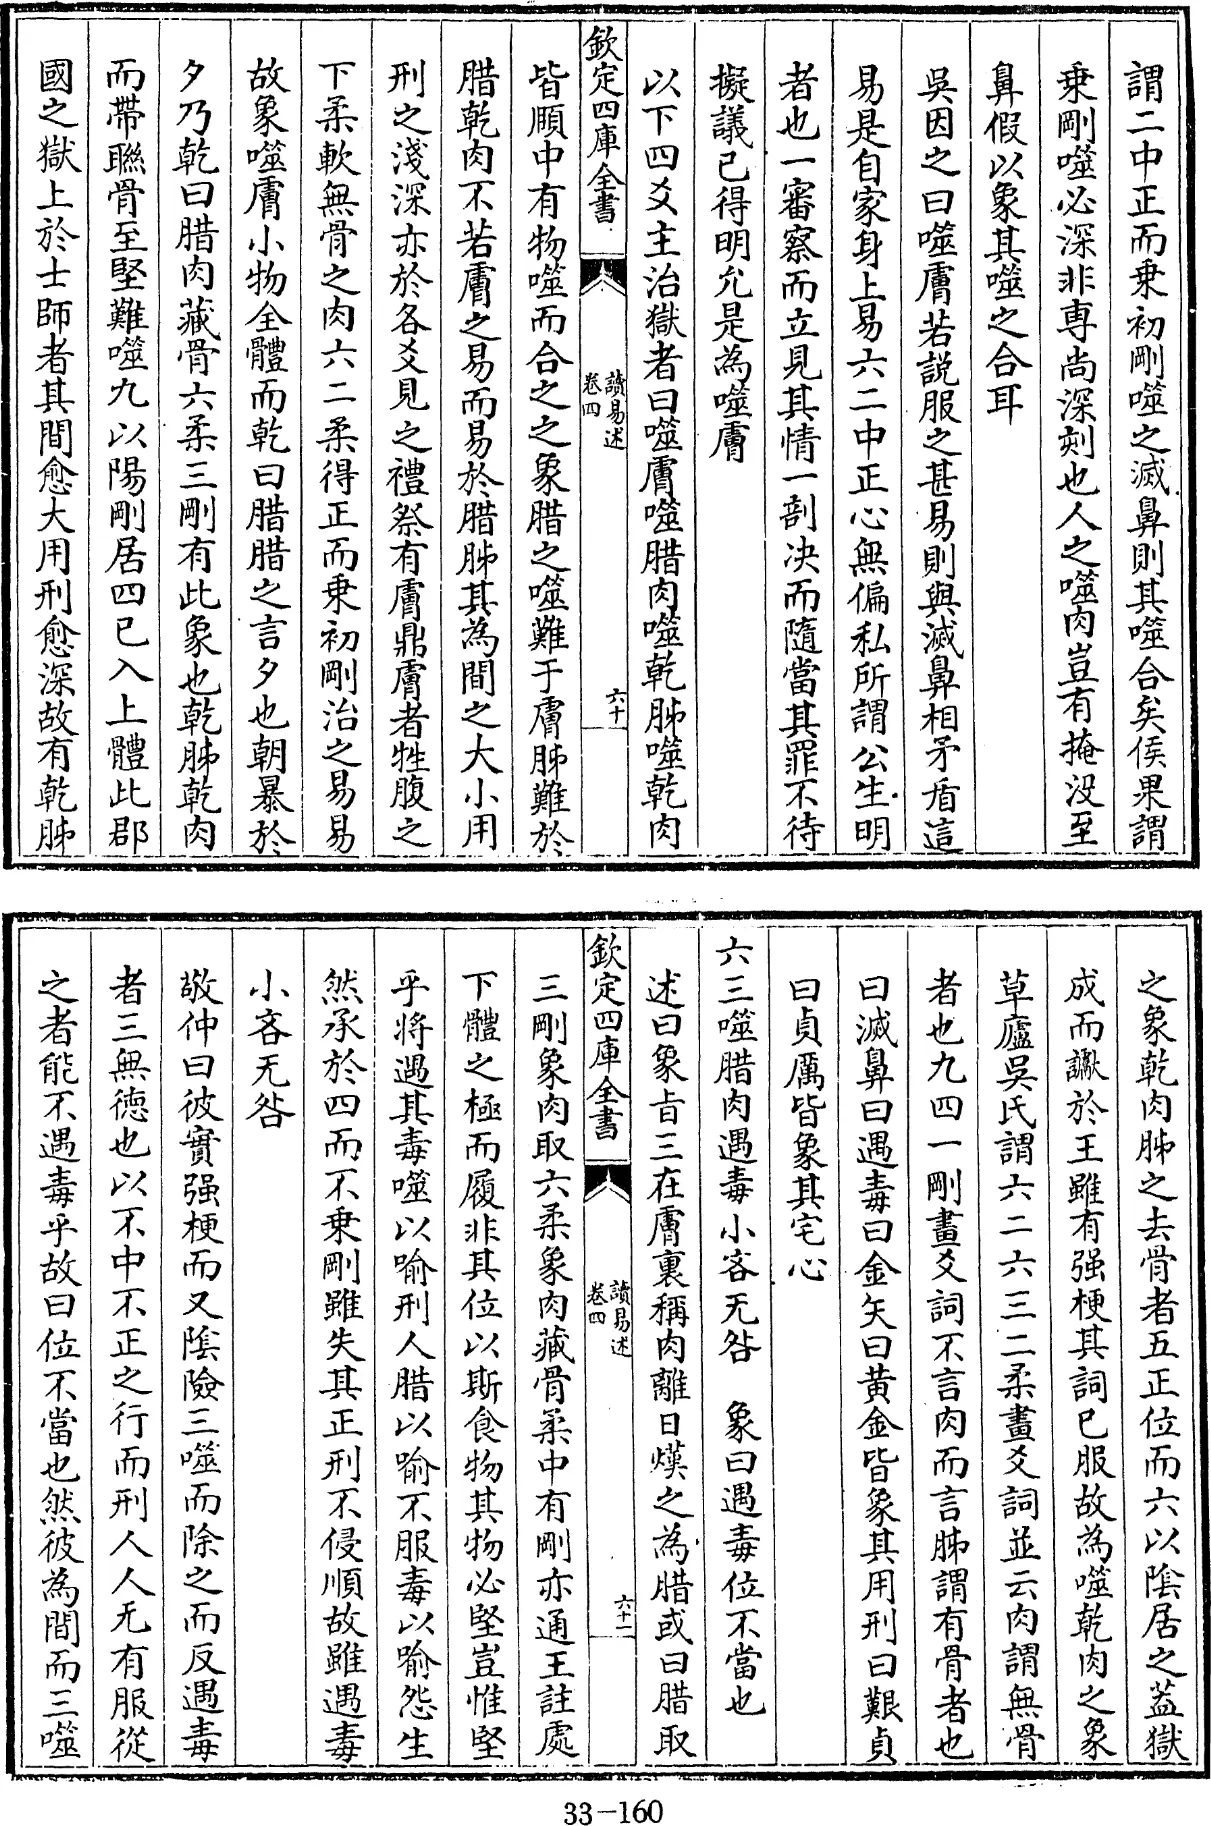 謂二中正而乗初剛噬之滅鼻則其噬合矣侯果謂
乗剛噬必深非専尚深刻也人之噬肉豈有掩没至
鼻假以象其噬之合耳
吳因之曰噬膚若説服之甚易則與滅鼻相矛盾這
易是自家身上易六二中正心無偏私所謂公生明
者也一審察而立見其情一剖决而隨當其罪不待
擬議已得明允是為噬膚
以下四爻主治獄者曰噬膚噬腊肉噬乾胏噬乾肉
欽定四庫全書
讀易述
卷四
六十
皆頤中有物噬而合之之象腊之噬難于膚胏難於
腊乾肉不若膚之易而易於腊胏其為間之大小用
刑之淺深亦於各爻見之禮祭有膚鼎膚者牲腹之
下柔軟無骨之肉六二柔得正而乗初剛治之易易
故象噬膚小物全體而乾曰腊腊之言夕也朝暴於
夕乃乾曰腊肉藏骨六柔三剛有此象也乾胏乾肉
而帶聮骨至堅難噬九以陽剛居四已入上體此郡
國之獄上於士師者其間愈大用刑愈深故有乾胏
之象乾肉胏之去骨者五正位而六以陰居之葢獄
成而讞於王雖有强梗其詞已服故為噬乾肉之象
草廬吳氏謂六二六三二柔畫爻詞並云肉謂無骨
者也九四一剛畫爻詞不言肉而言胏謂有骨者也
曰滅鼻曰遇毒曰金矢曰黄金皆象其用刑曰艱貞
曰貞厲皆象其宅心
六三噬腊肉遇毒小吝无咎　象曰遇毒位不當也
述曰象旨三在膚裏稱肉離日熯之為腊或曰腊取
欽定四庫全書
讀易述
卷四
六十一
三剛象肉取六柔象肉藏骨柔中有剛亦通王註處
下體之極而履非其位以斯食物其物必堅豈惟堅
乎將遇其毒噬以喻刑人腊以喻不服毒以喻怨生
然承於四而不乗剛雖失其正刑不侵順故雖遇毒
小吝无咎
敬仲曰彼實强梗而又陰險三噬而除之而反遇毒
者三無德也以不中不正之行而刑人人无有服從
之者能不遇毒乎故曰位不當也然彼為間而三噬
33-160